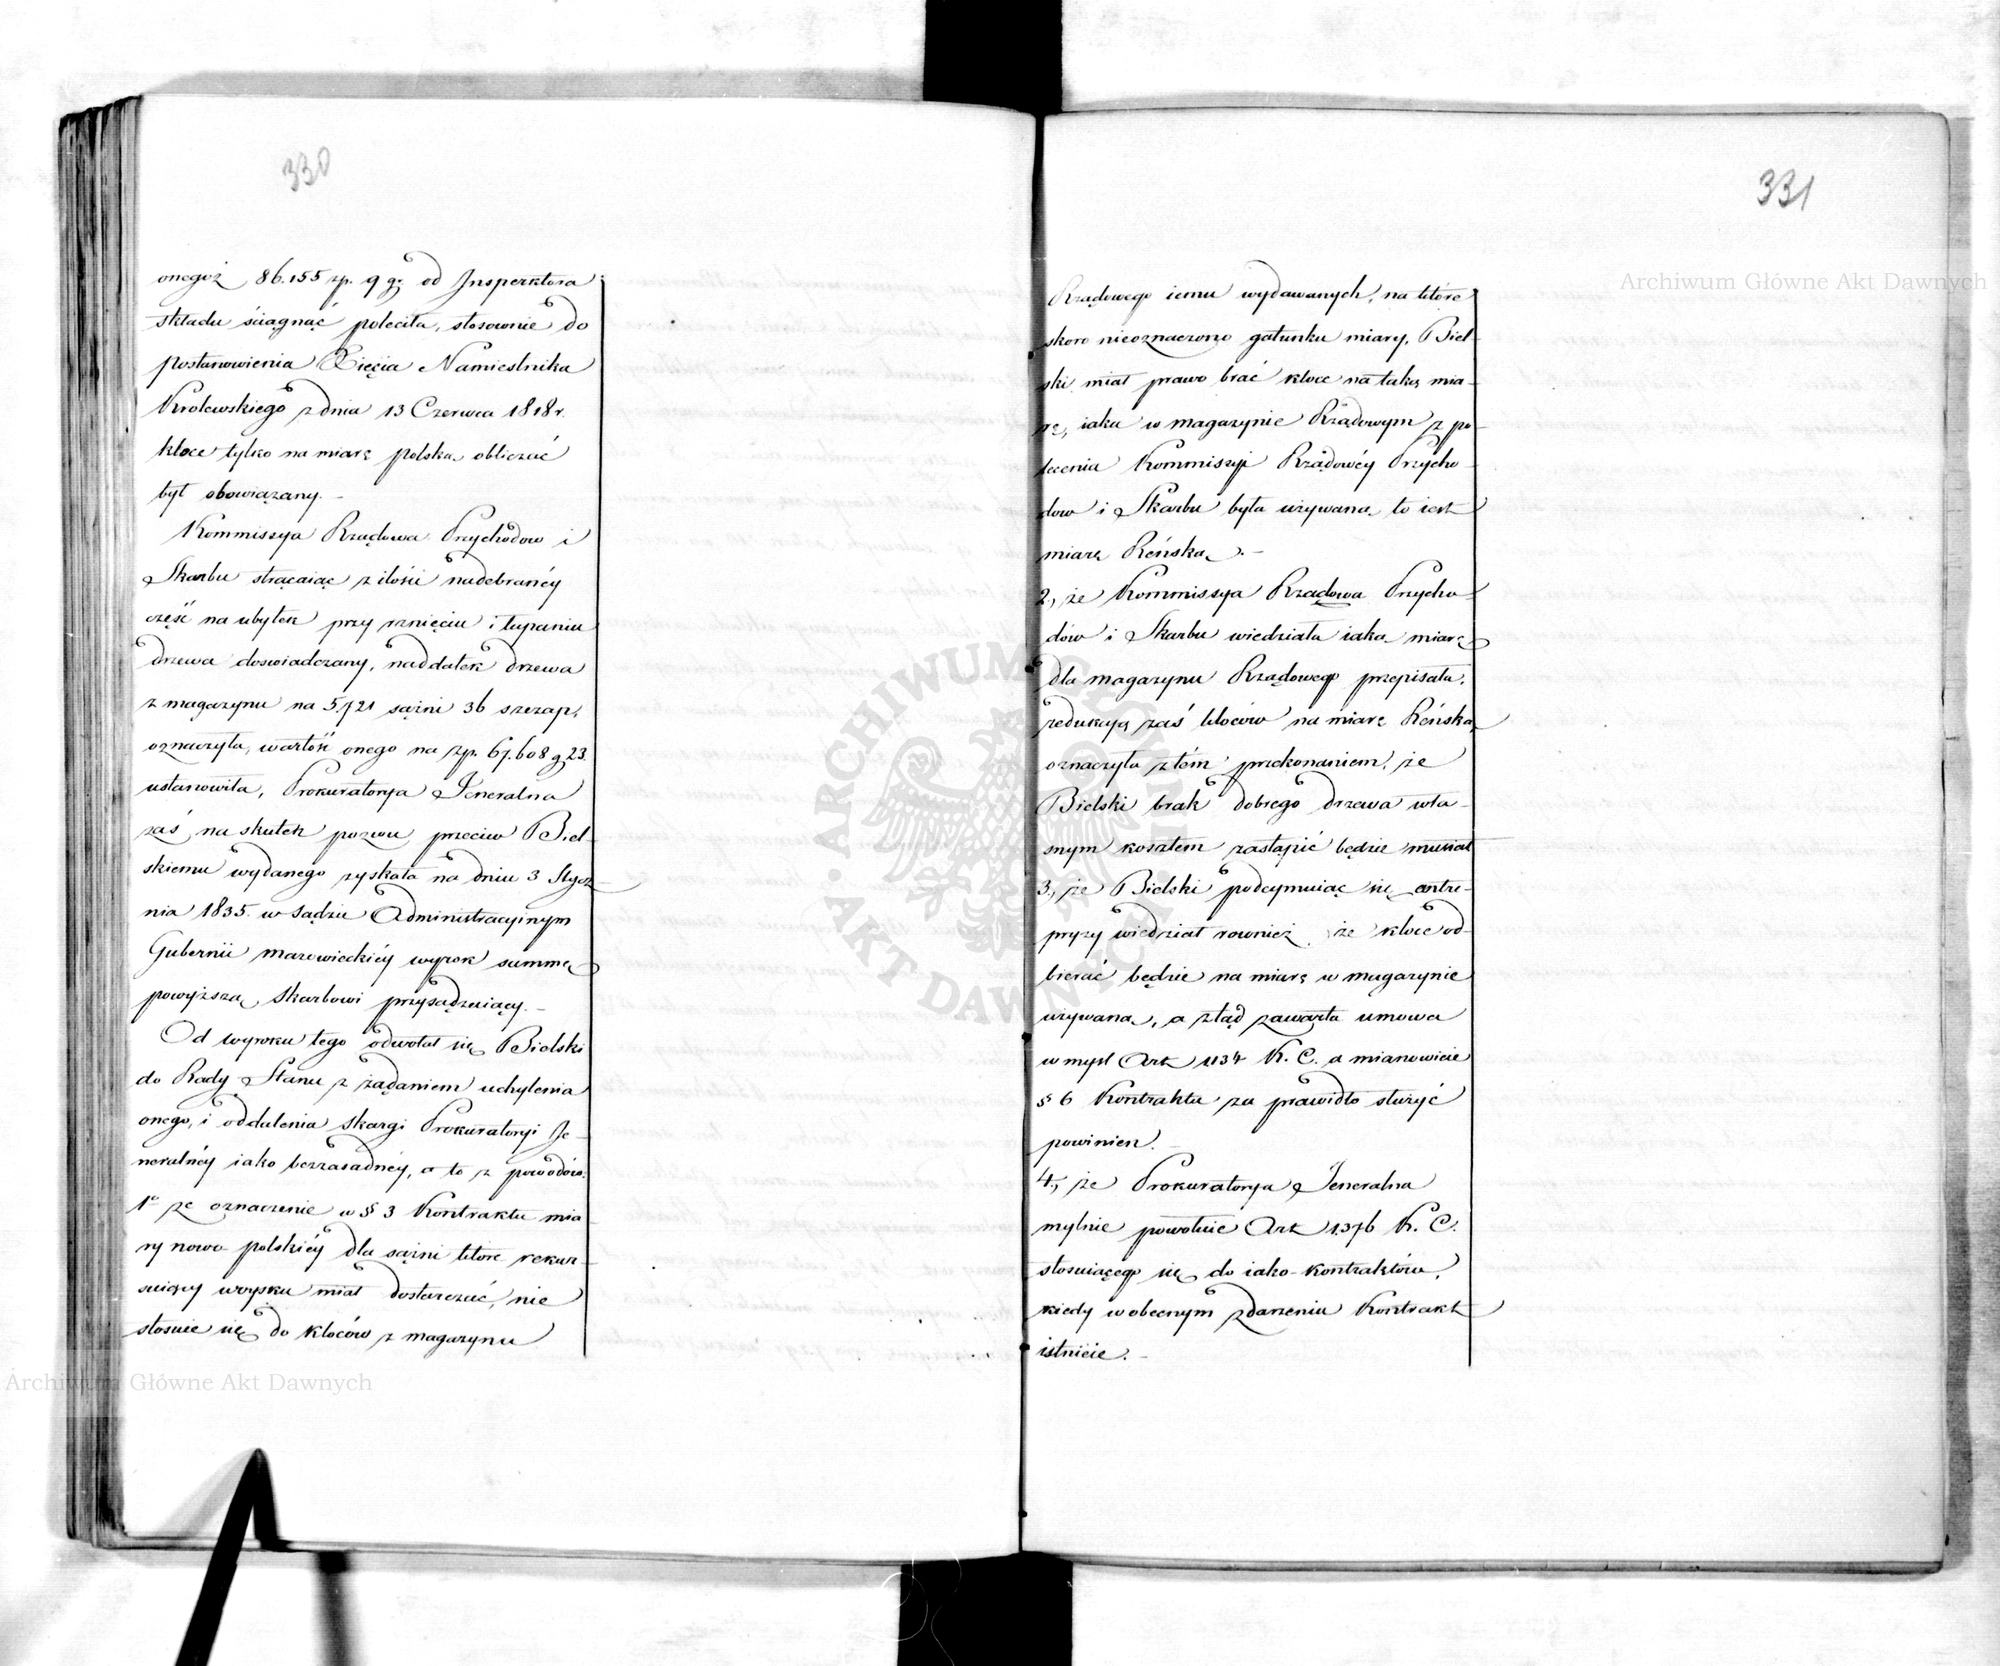 330
onegoż 86.155 zp. 9 gr. od Inspektora
składu ściągnąć poleciła, stosownie do
postanowienia Xięcia Namiestnika
Krolewskiego z dnia 13 Czerwca 1818 r.
kloce tylko na miarę polską obliczać
był obowiązany. –
Kommissya Rządowa Przychodow i
Skarbu strącaiąc z ilości nadebranéy
część na ubytek przy rznięciu i łupaniu
drzewa doswiadczany, naddatek drzewa
z magazynu na 5,721 sążni 36 szczap,
oznaczyła, wartość onego na zp. 67.608 g 23.
ustanowiła, Prokuratorya Jeneralna
zaś na skutek pozwu przeciw Biel-
skiemu wydanego zyskała na dniu 3 Stycz-
nia 1835. w Sądzie Administracyinym
Gubernii mazowieckiéy wyrok summę
powyższą Skarbowi przysądzaiący. –
Od wyroku tego odwołał się Bielski
do Rady Stanu z żądaniem uchylenia
onego, i oddalenia skargi Prokuratoryi Je-
neralnéy iako bezzasadnéy, a to z powodów.
1e że oznaczenie w § 3 Kontraktu mia-
ry nowo-polskiéy dla sążni które rekur-
suiący w zysku miał dostarczać, nie
stosuie się do kloców z magazynu
331
Rządowego iemu wydawanych, na które
skoro nieoznaczono gatunku miary, Biel-
ski miał prawo brać kloce na taką mia-
rę, iaka w magazynie Rządowym z po-
lecenia Kommissyi Rządowéy Przycho-
dow i Skarbu była używaną to iest
miarę Reńską. –
2., że Kommissya Rządowa Przycho-
dów i Skarbu wiedziała iaką miarę
dla magazynu Rządowego przepisała,
redukcyą zaś kloców na miarę Reńską
oznaczyła z tém przekonaniem, że
Bielski brak dobrego drzewa wła-
snym kosztem zastąpić będzie musiał
3., że Bielski podeymuiąc się entre-
pryzy wiedział rownież że kloce od-
bierać będzie na miarę w magazynie
używaną, a ztąd zawarta umowa
w mysl Art 1134 K. C. a mianowicie
§ 6 Kontraktu za prawidło służyć
powinien. –
4., że Prokuratorya Jeneralna
mylnie powołuie Art 1376 K. C.
stosuiącego się do iako-kontraktów,
kiedy w obecnym zdarzeniu Kontrakt
istnieie. –
Archiwum Główne Akt Dawnych
Archiwum Główne Akt Dawnych
ARCHIWUM GŁÓWNE • AKT DAWNYCH •